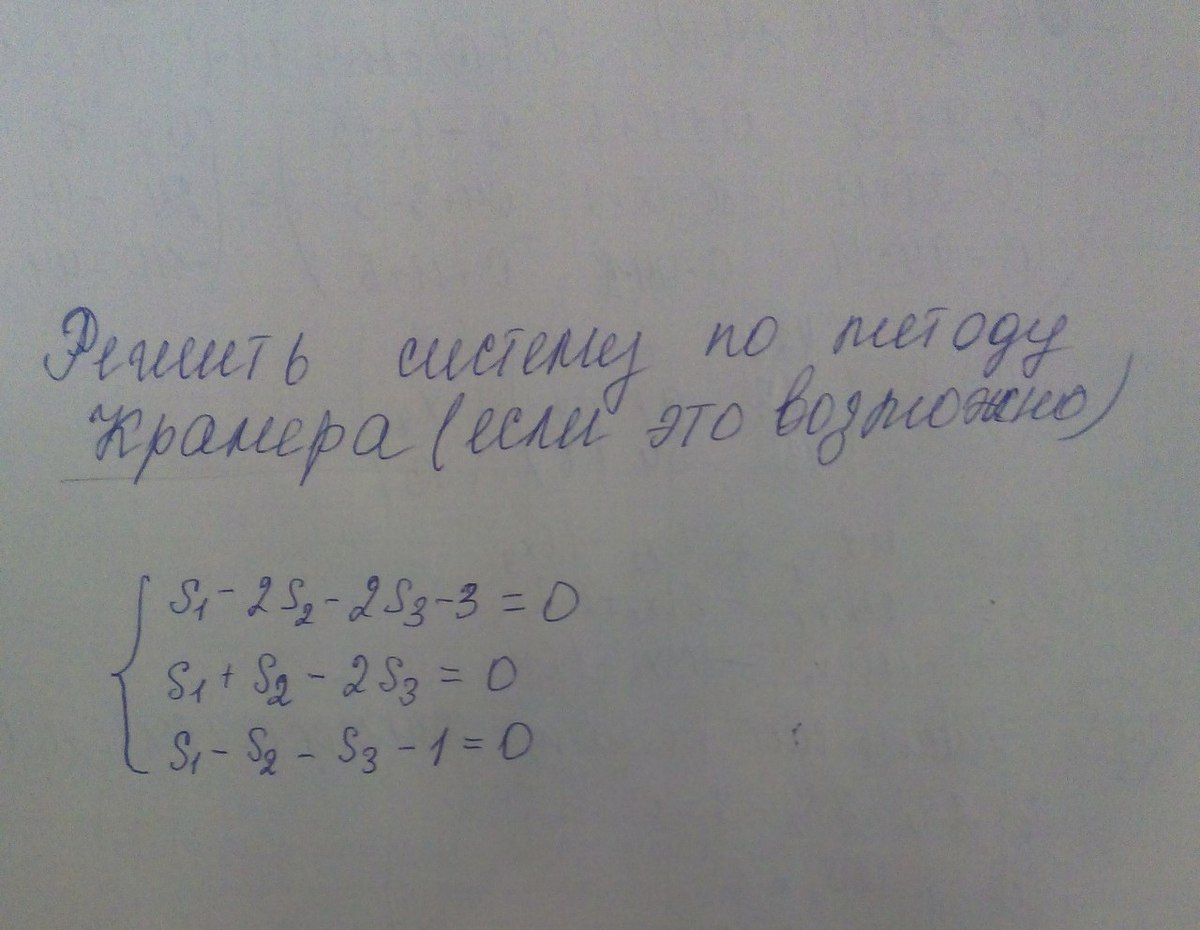 Решить систему по методу
Крамера (если это возможно)
S₁ - 2S₂ - 2S₃ - 3 = 0
S₁ + S₂ - 2S₃ = 0
S₁ - S₂ - S₃ - 1 = 0